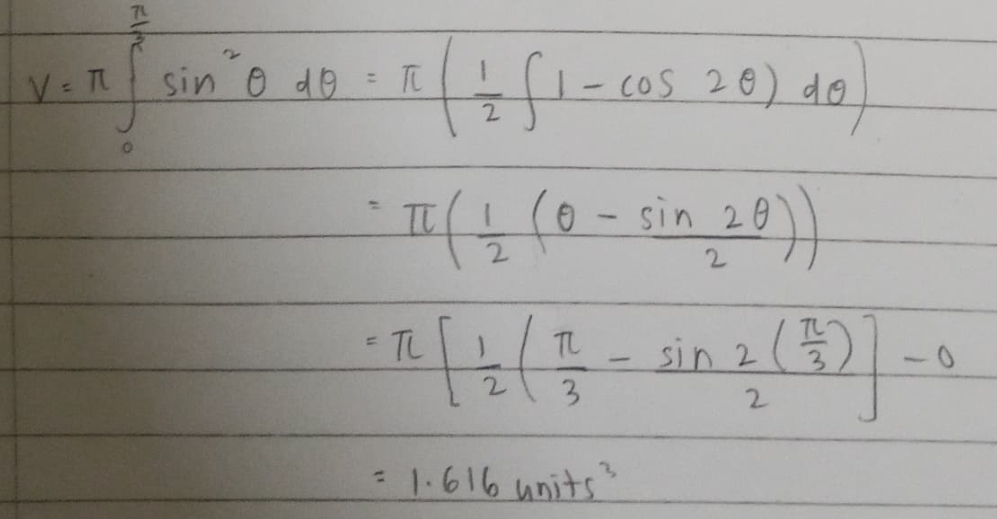 V = π ∫₀^(π/3) sin² θ dθ = π ( 1/2 ∫ 1 - cos 2θ) dθ )
= π ( 1/2 ( θ - sin 2θ / 2 ) )
= π [ 1/2 ( π/3 - sin 2 ( π/3 ) / 2 ] - 0
= 1.616 units³